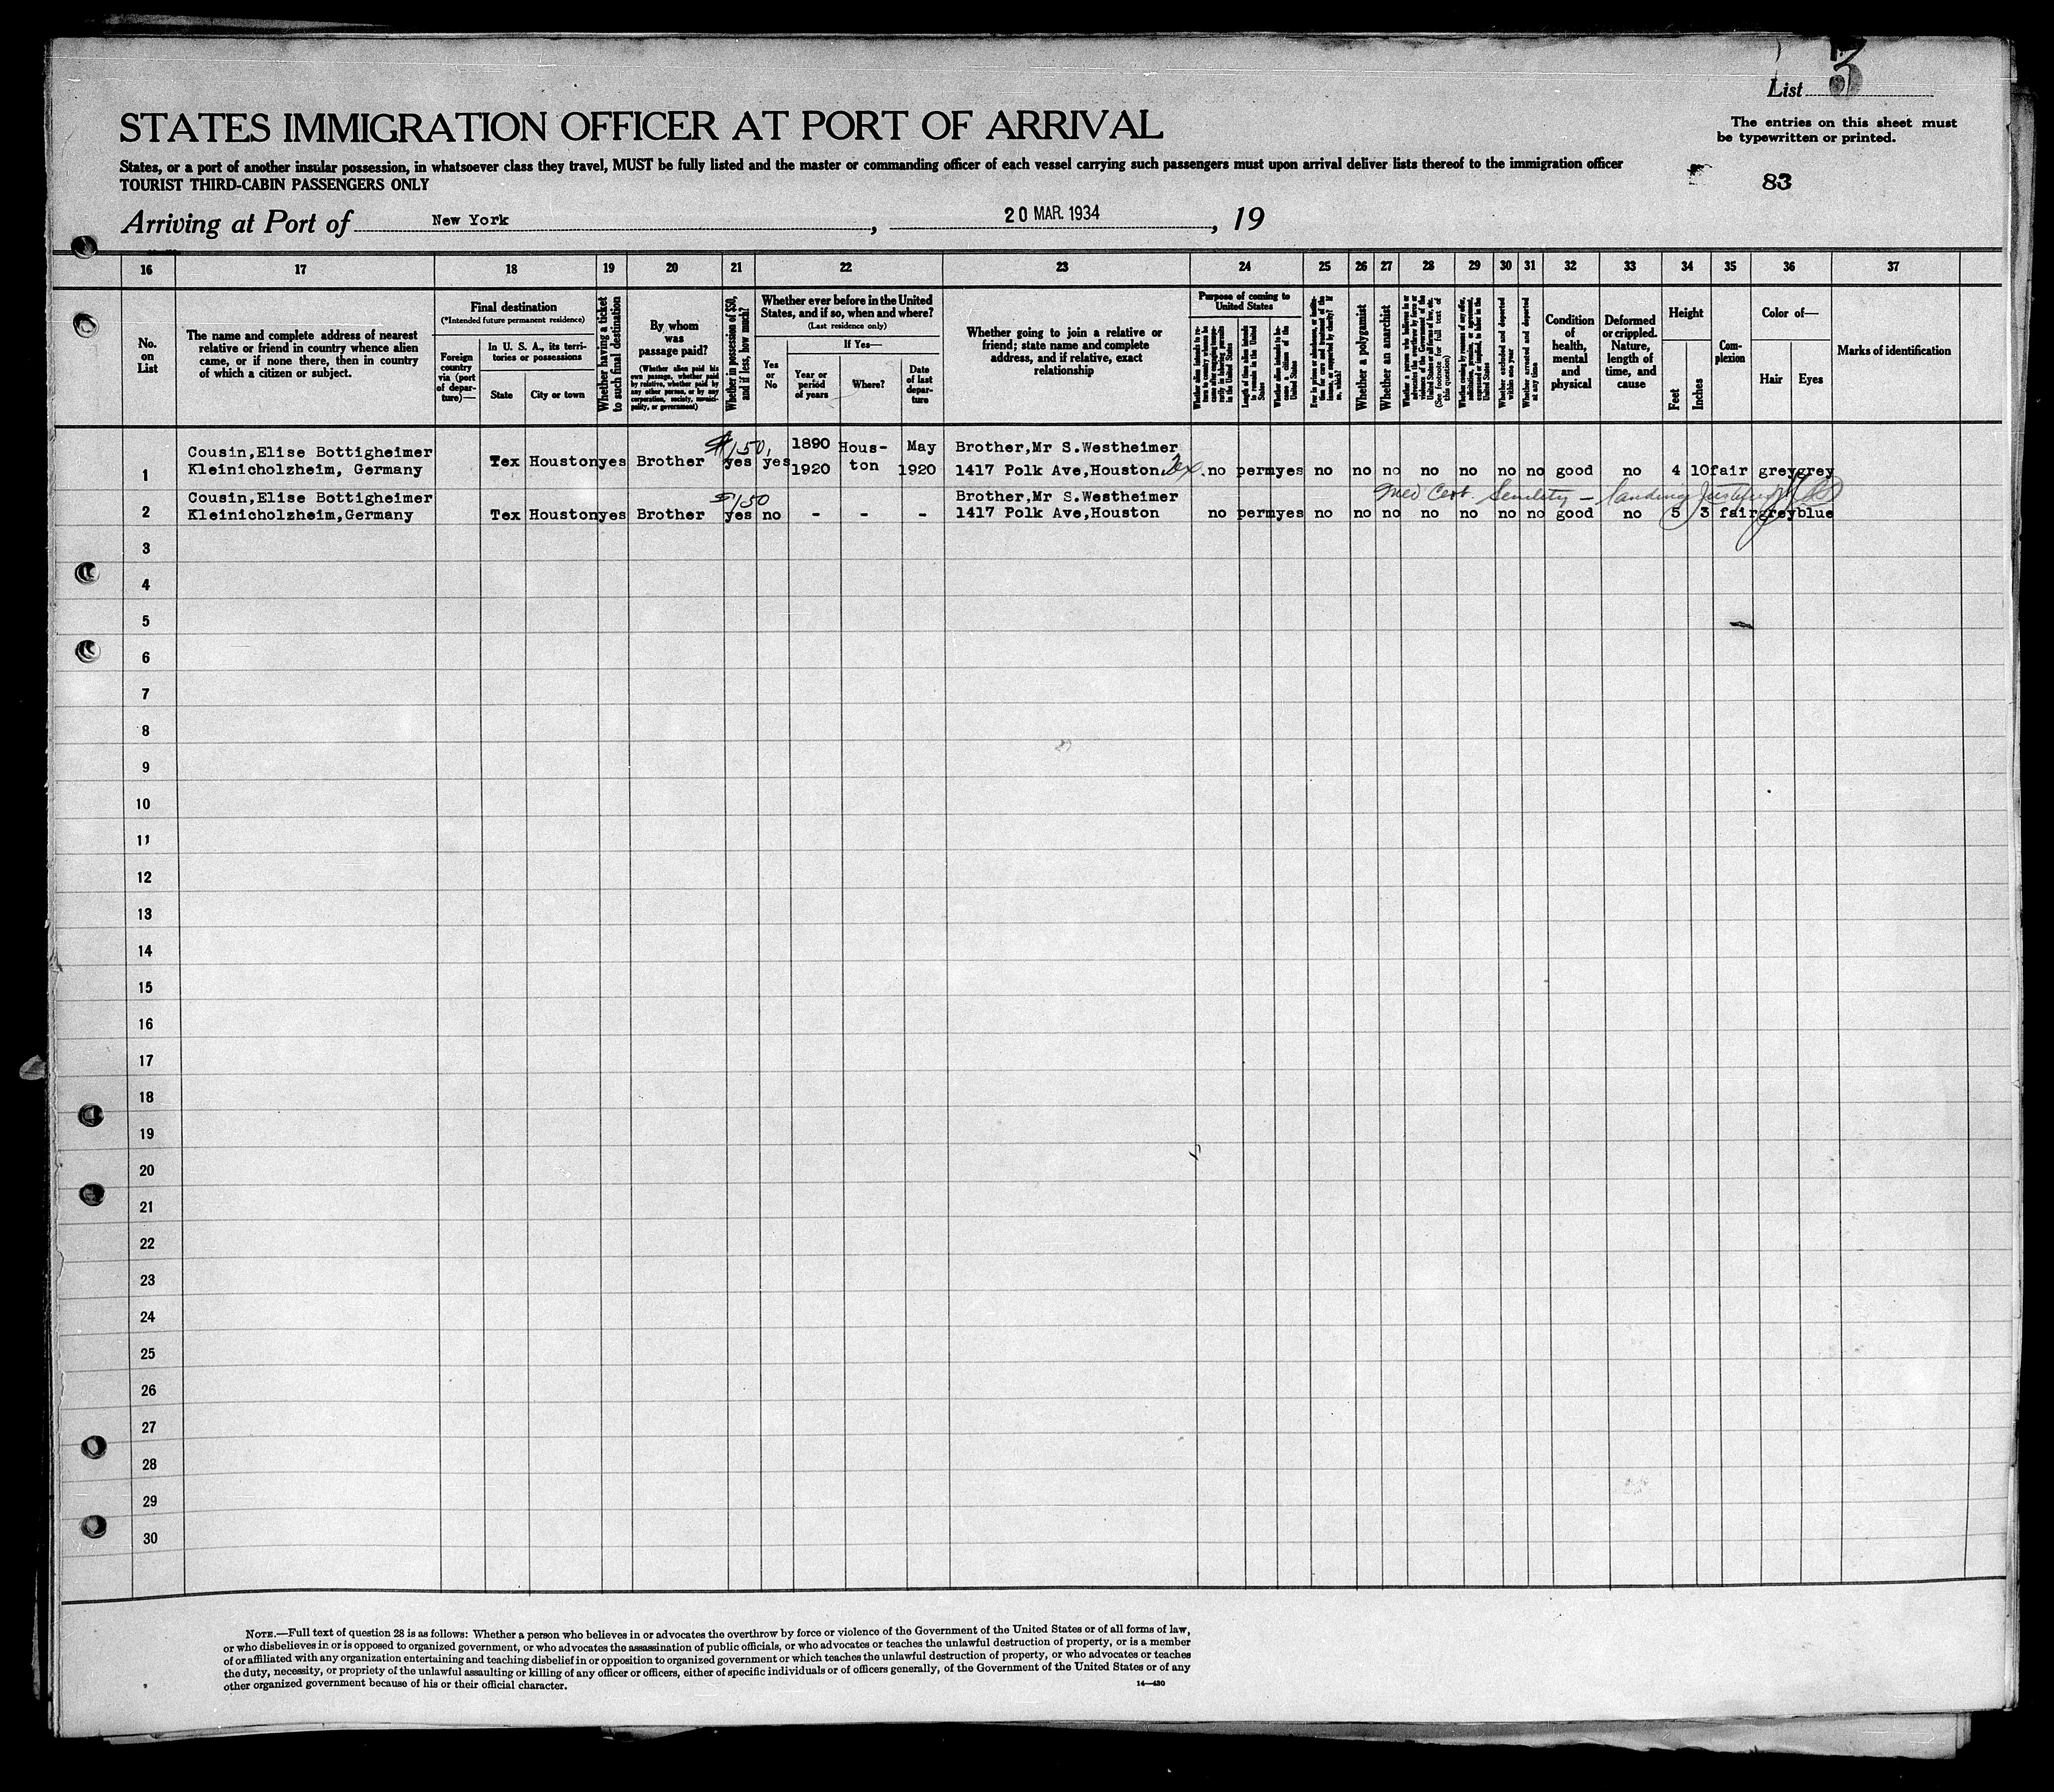 List 3
STATES IMMIGRATION OFFICER AT PORT OF ARRIVAL
The entries on this sheet must
be typewritten or printed.
States, or a port of another insular possession, in whatsoever class they travel, MUST be fully listed and the master or commanding officer of each vessel carrying such passengers must upon arrival deliver lists thereof to the immigration officer
TOURIST THIRD-CABIN PASSENGERS ONLY
83
Arriving at Port of New York, 20 MAR. 1934, 19
16 17 18 19 20 21 22 23 24 25 26 27 28 29 30 31 32 33 34 35 36 37
No.
on
List
The name and complete address of nearest
relative or friend in country whence alien
came, or if none there, then in country
of which a citizen or subject.
Final destination
(*Intended future permanent residence)
Foreign
country
via (port
of depar-
ture)—
In U. S. A., its terri-
tories or possessions
State
City or town
Whether having a ticket
to such final destination
By whom
was
passage paid?
(Whether alien paid his
own passage, whether paid
by relative, whether paid by
any other person, or by any
corporation, society, munici-
pality, or government)
Whether in possession of $50,
and if less, how much?
Whether ever before in the United
States, and if so, when and where?
(Last residence only)
Yes
or
No
If Yes—
Year or
period
of years
Where?
Date
of last
depar-
ture
Whether going to join a relative or
friend; state name and complete
address, and if relative, exact
relationship
Purpose of coming to
United States
Length of time alien intends
to remain in the United
States
Whether alien intends to be-
come a citizen of the
United States
Whether a polygamist
Whether an anarchist
(See footnote for full text of
this question)
Whether excluded and deported
within one year
Whether arrested and deported
at any time
Condition
of
health,
mental
and
physical
Deformed
or crippled.
Nature,
length of
time, and
cause
Height
Feet
Inches
Com-
plexion
Color of—
Hair
Eyes
Marks of identification
1
Cousin,Elise Bottigheimer
Kleinicholzheim, Germany
Tex Houston yes Brother $150, yes yes
1890
1920
Hous-
ton
May
1920
Brother,Mr S.Westheimer
1417 Polk Ave,Houston Tex. no perm yes no no no no no no no good no 4 10 fair grey grey
Med Cert. Senility — landing justified
2
Cousin,Elise Bottigheimer
Kleinicholzheim,Germany
Tex Houston yes Brother $150 yes no - - -
Brother,Mr S.Westheimer
1417 Polk Ave,Houston no perm yes no no no no no no no good no 5 3 fair grey blue
3
4
5
6
7
8
9
10
11
12
13
14
15
16
17
18
19
20
21
22
23
24
25
26
27
28
29
30
NOTE.—Full text of question 28 is as follows: Whether a person who believes in or advocates the overthrow by force or violence of the Government of the United States or of all forms of law,
or who disbelieves in or is opposed to organized government, or who advocates the assassination of public officials, or who advocates or teaches the unlawful destruction of property, or is a member
of or affiliated with any organization entertaining and teaching disbelief in or opposition to organized government or which teaches the unlawful destruction of property, or who advocates or teaches
the duty, necessity, or propriety of the unlawful assaulting or killing of any officer or officers, either of specific individuals or of officers generally, of the Government of the United States or of any
other organized government because of his or their official character.
14—430